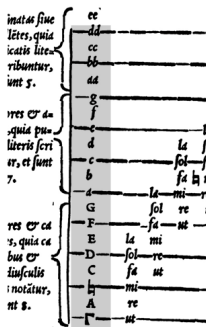 imatas ſiue
lētes, quia
icatis lite=
ribuntur,
unt 5.
res & a=
,quia pu=
literis ſcri
ur, et ſunt
7.
res & ca
s, quia ca
bus &
diuſculis
notātur,
nt 8.
ee
dd
cc
bb
aa
g
f
e
d la
c ſol
b fa ♮
a la mi
G ſol re
F fa ut
E la mi
D ſol re
C fa ut
♮ mi
A re
Γ ut